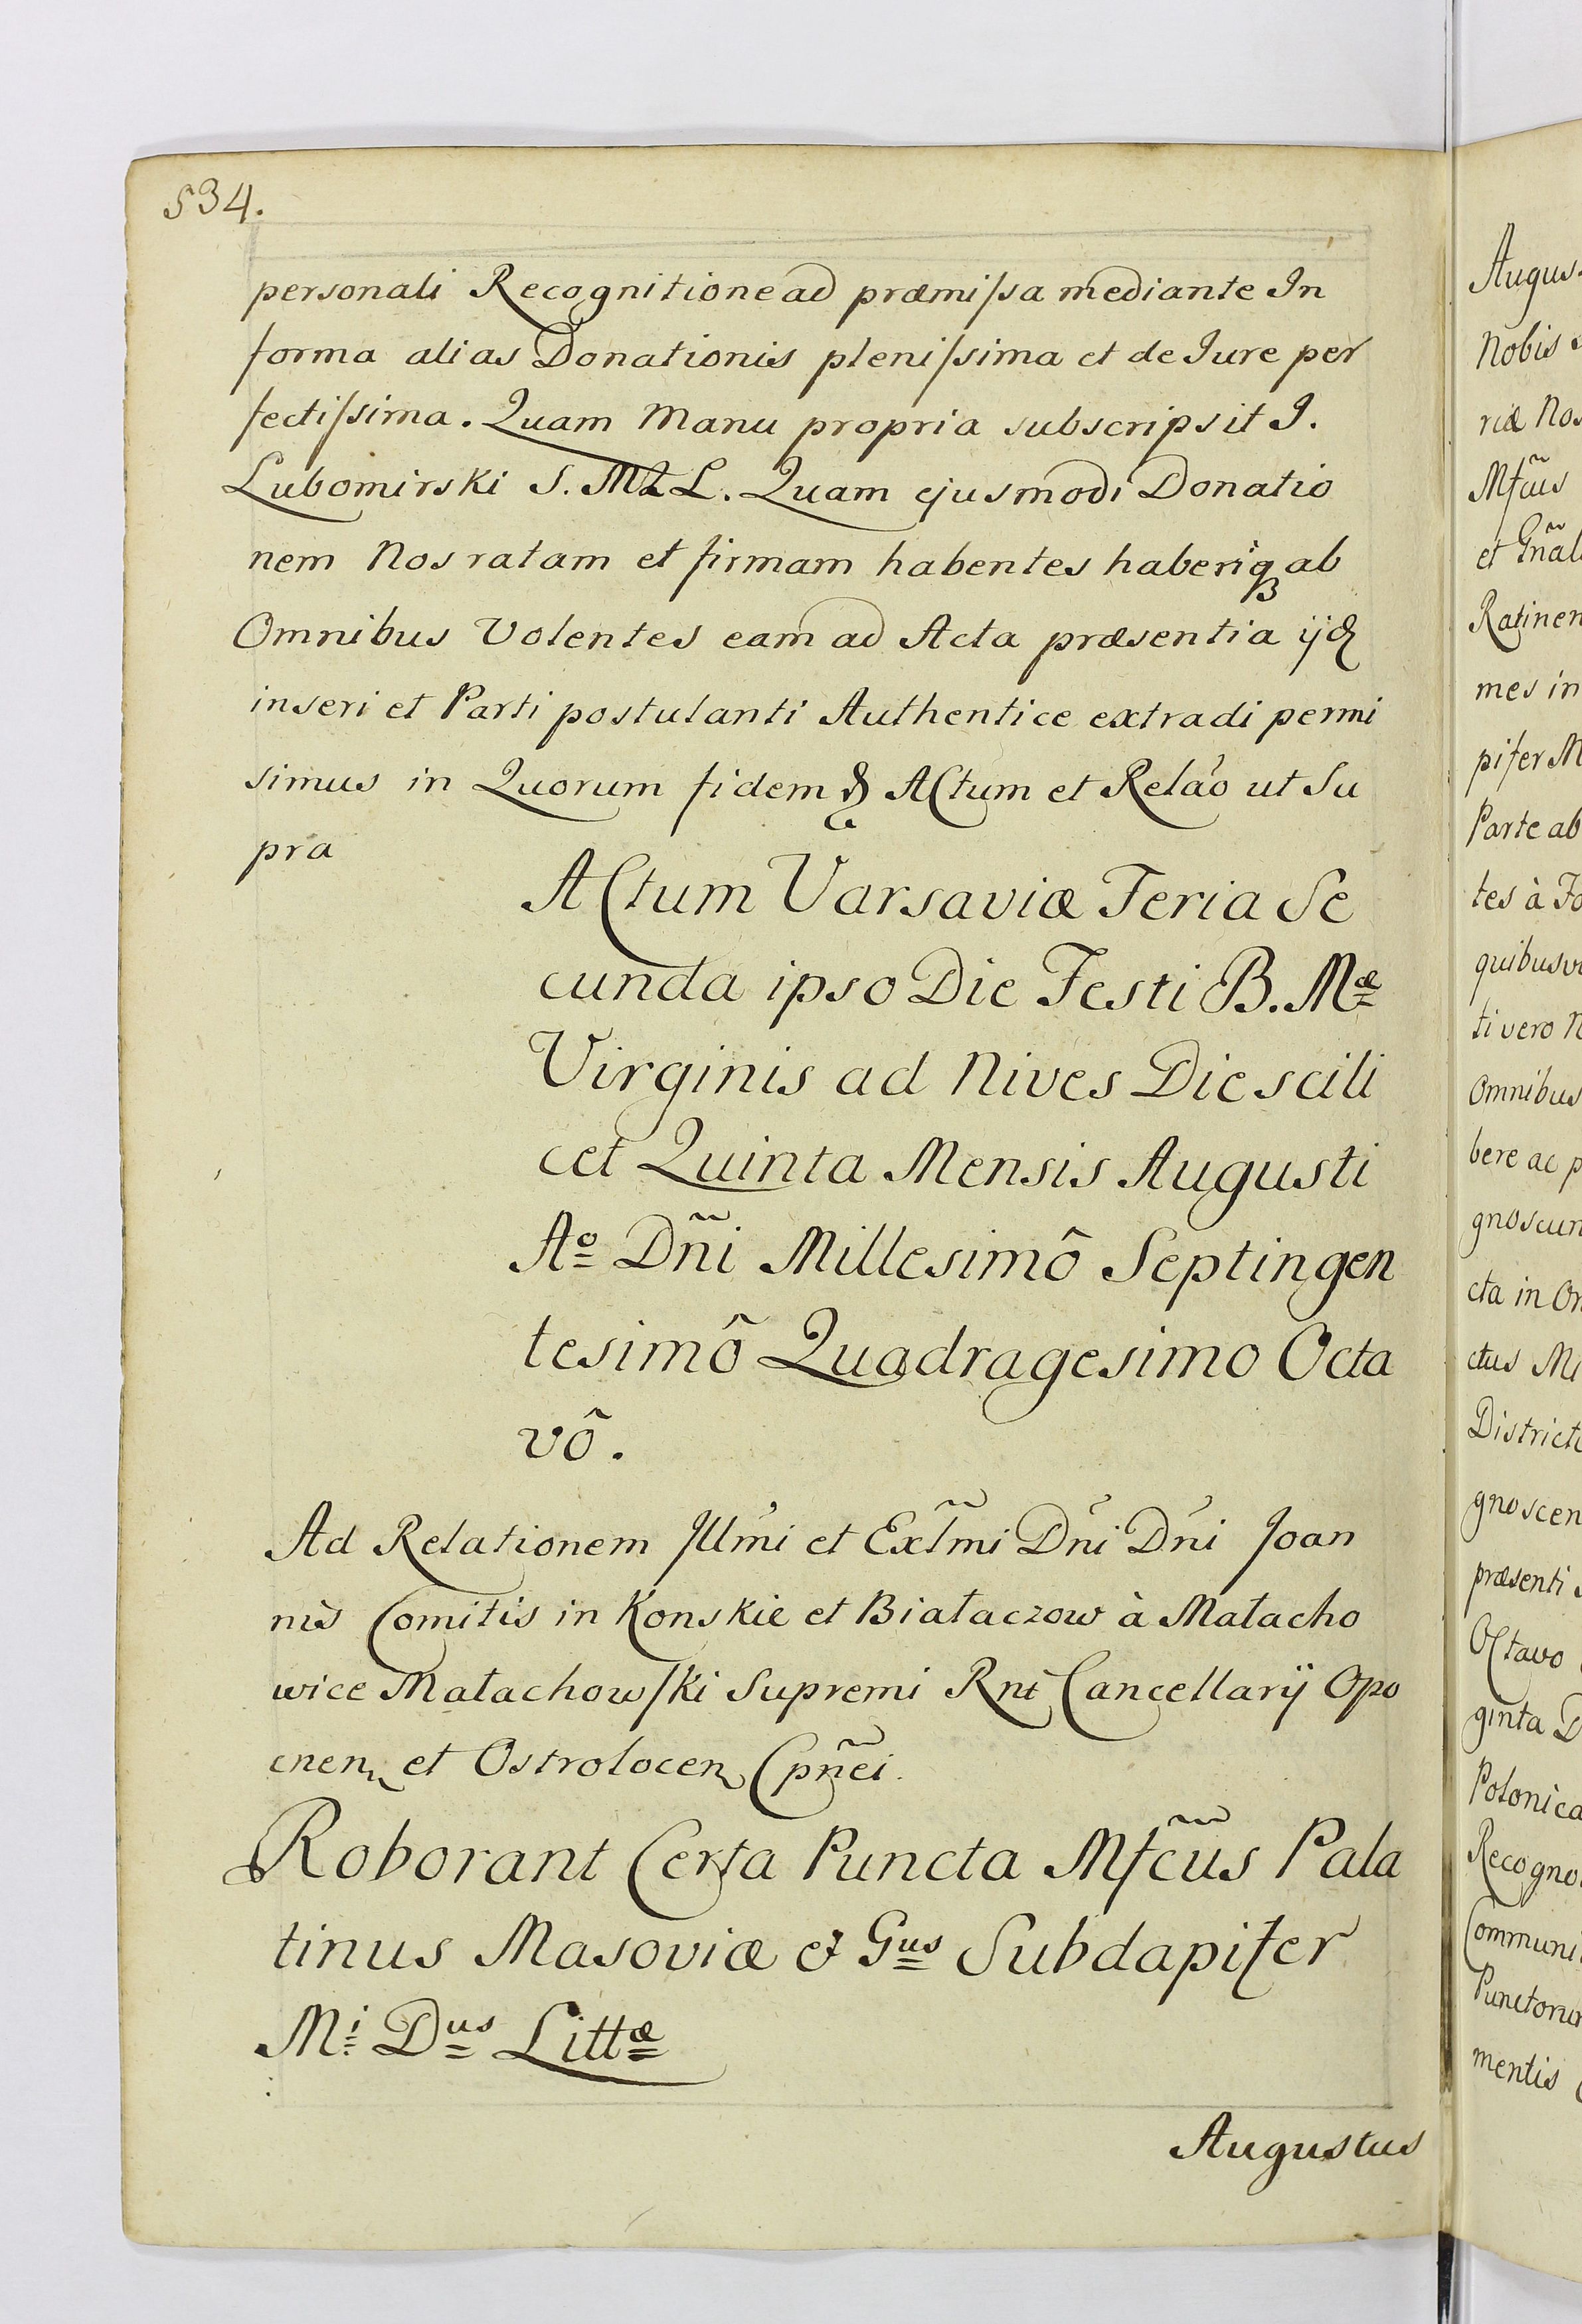 534.
personali Recognitione ad præmissa mediante In
forma alias Donationis plenissima et de Jure per
fectissima. Quam Manu propria subscripsit J.
Lubomirski S. M L. Quam ejusmodi Donatio
nem Nos ratam et firmam habentes haberiq ab
Omnibus Volentes eam ad Acta præsentia
inseri et Parti postulanti Authentice extradi permi
simus in Quorum fidem Actum et Relão ut Su
pra
Actum Varsaviæ Feria Se
cunda ipso Die Festi B. Mæ
Virginis ad Nives Die scili
cet Quinta Mensis Augusti
Ao Dñi Millesimô Septingen
tesimô Quadragesimo Octa
vô.
Ad Relationem Jllmi et Exlmi Dni Dni Joan
nis Comitis in Konskie et Białaczow à Małacho
wice Małachowski Supremi Rni Cancellarij Opo
cnen et Ostrołocen Cpnei.
Roborant Certa Puncta Mfcus Pala
tinus Masoviæ et Gus Subdapifer
Mi Dus Littæ
Augustus
Augus
Nobis
riæ Nos
Mfcus
et Gñal
Ratinen
mes in
pifer M
Parte ab
tes à Fo
quibusvi
ti vero N
Omnibus
bere ac p
gnoscun
cta in Or
ctus Mi
Districtu
gnoscen
præsenti
Octavo
ginta D
Polonica
Recogno
Communi
Punctorum
mentis